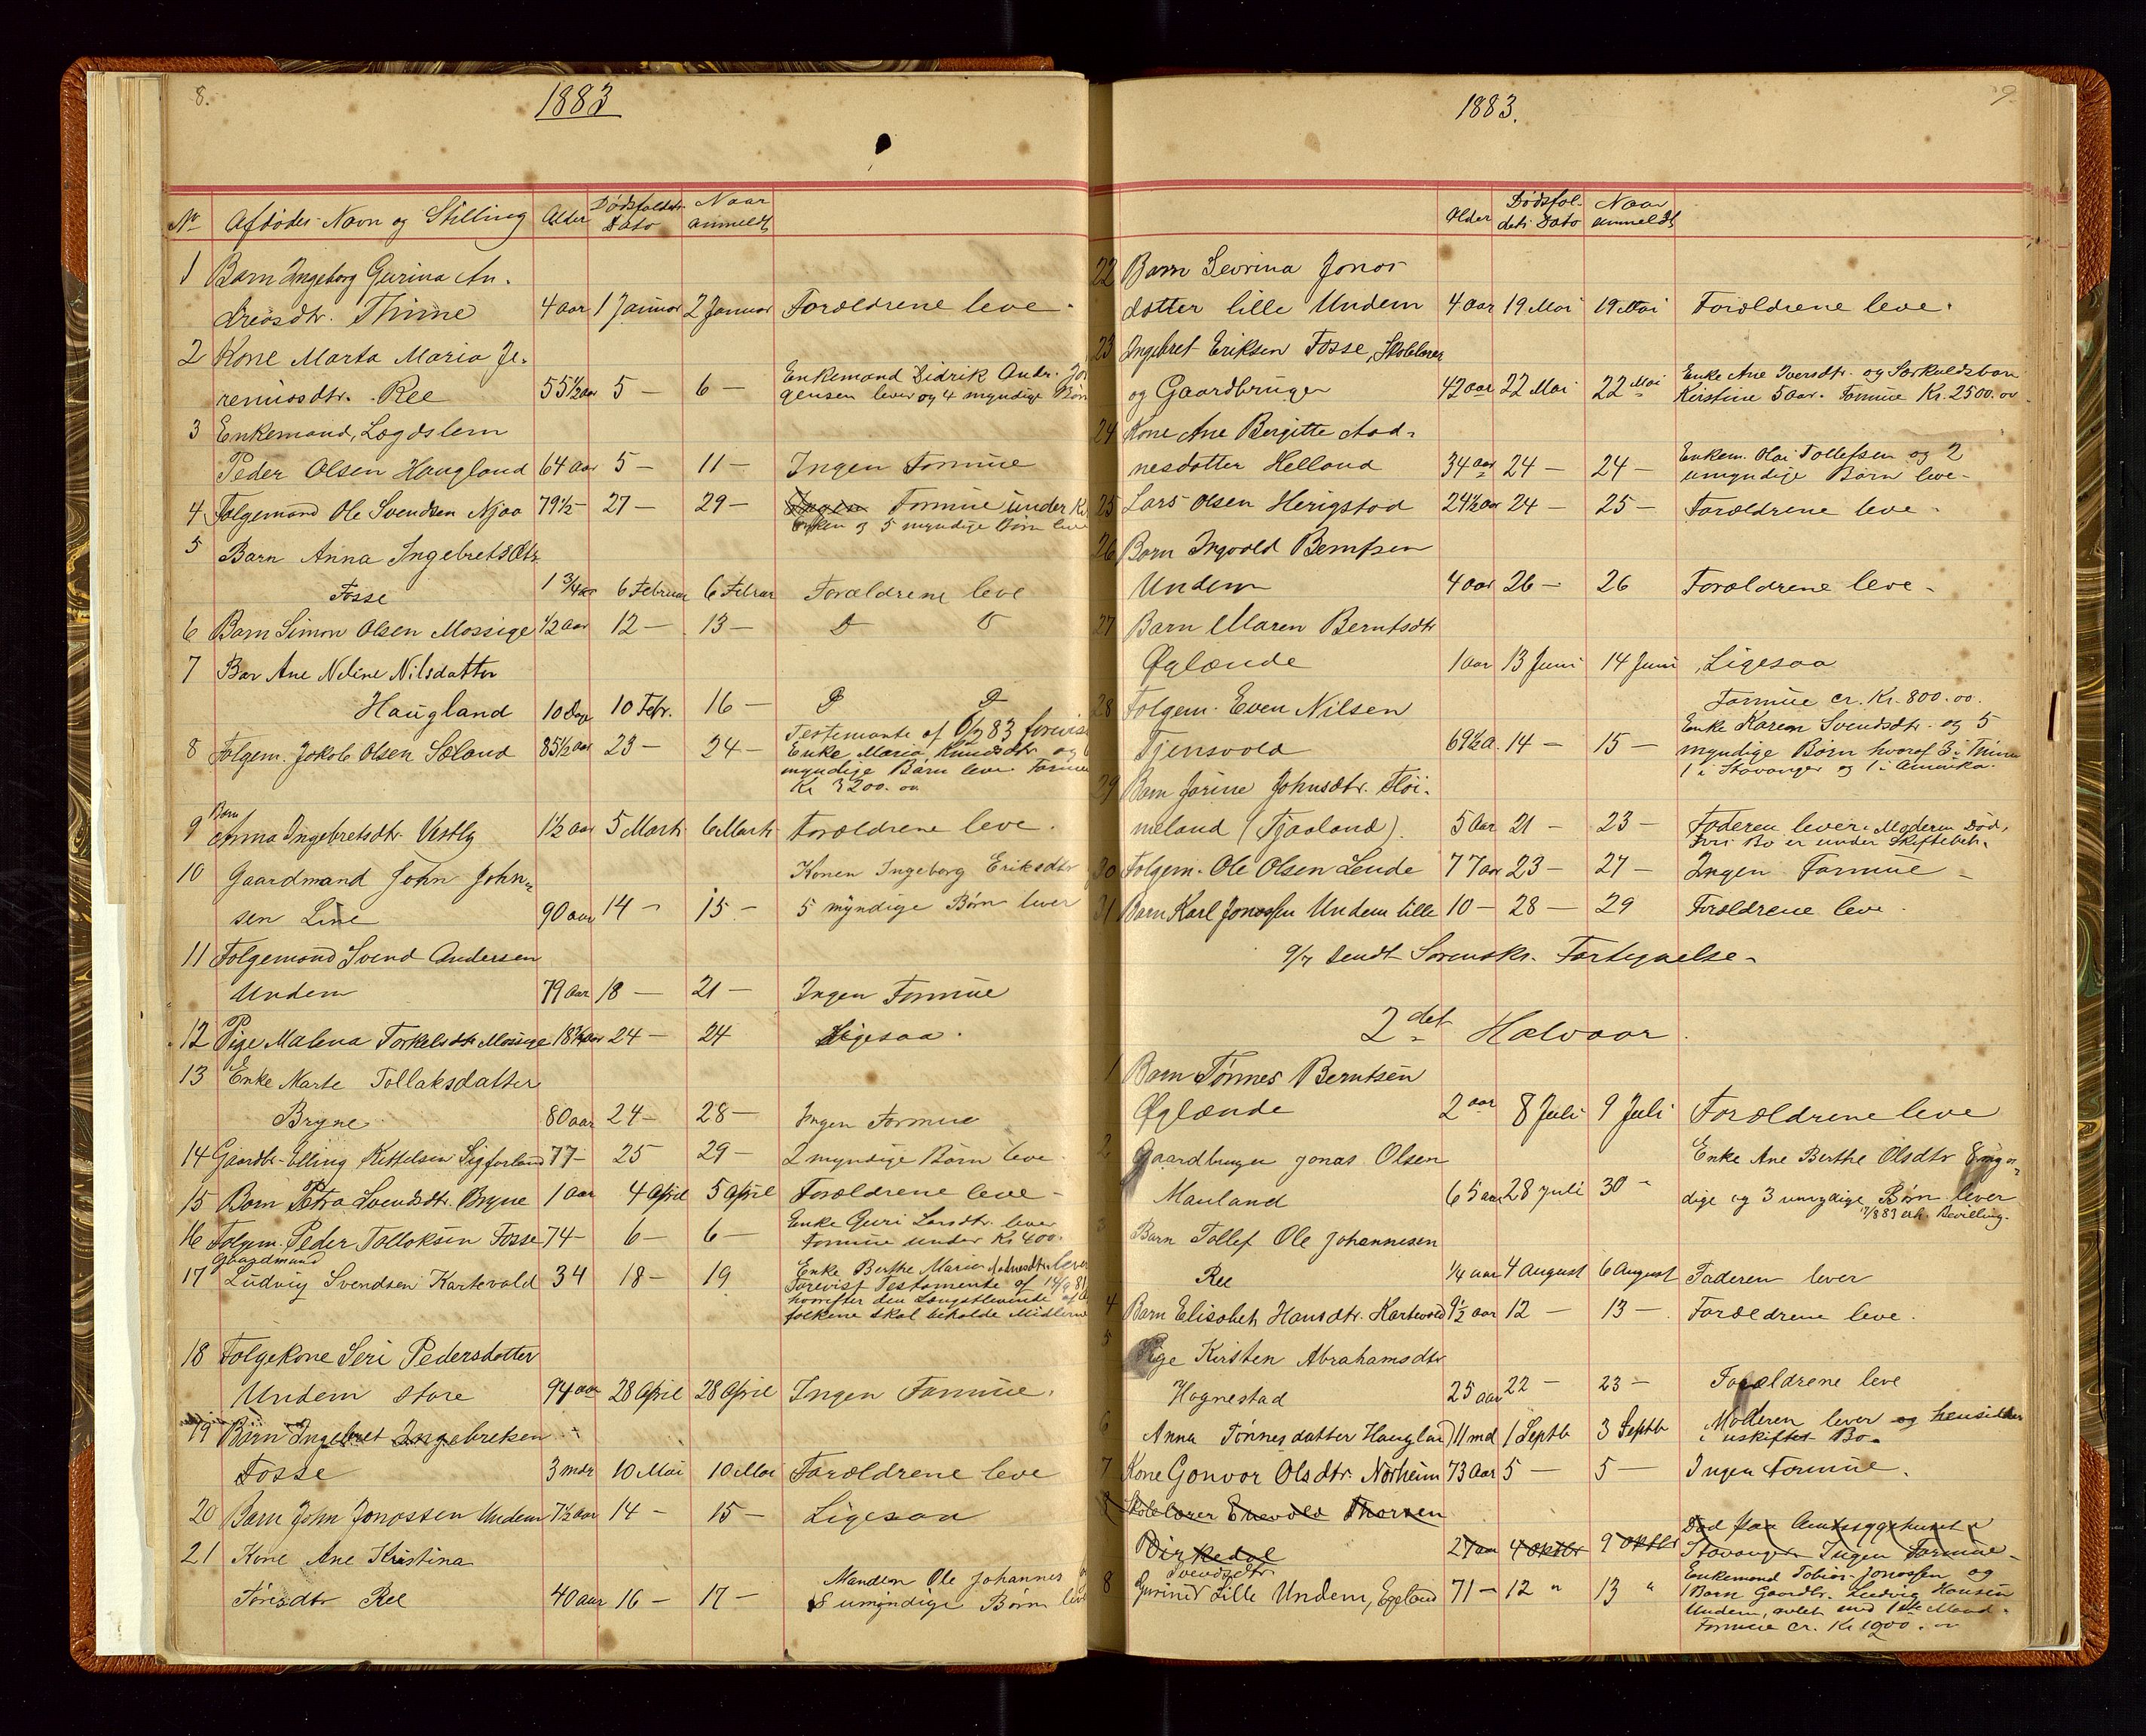 8.
1883
No Afdødes Navn og Stilling Alder Dødsfaldets Dato Naar anmeldt
1 Barn Ingeborg Gurina An-
dreasdtr. Thime 4 aar 1 Januar 2 Januar Forældrene leve.
2 Kone Marta Maria Je-
remiasdtr. Ree 55½ aar 5 — 6 — Enkemand Didrik Andr.
gensen lever og 4 myndige Børn
3 Enkemand, Lægdslem
Peder Olsen Haugland 64 aar 5 — 11 — Ingen Formue
4 Folgemand Ole Svendsen Njaa 79½ — 27 — 29 — Ingen Formue under Kr
Enken og 5 myndige Børn leve
5 Barn Anna Ingebretsdtr.
Fosse 1 3/4 aar 6 Februar 6 Februar Forældrene leve
6 Barn Simon Olsen Mossige ½ aar 12 — 13 — D D
7 Bar Ane Neline Nilsdatter
Haugland 10 Dage 10 Febr. 16 — D D
8 Folgem. Jakob Olsen Sæland 85½ aar 23 — 24 — Testemante af 83 forevist
Enke Maria Knudsdtr og
myndige Børn leve Formue
Kr 3200.00
9 Barn Anna Ingebretsdtr. Vestly 1½ aar 5 Marts 6 Marts Forældrene leve.
10 Gaardmand John John- Konen Ingeborg Eriksdtr
sen Line 90 aar 14 — 15 — 5 myndige Børn lever
11 Folgemand Svend Andersen
Undem 79 aar 18 — 21 — Ingen Formue
12 Pige Malena Torkelsdtr Mossige 18¾ aar 24 — 24 Ligesaa.
13 Enke Marte Tollaksdatter
Bryne 80 aar 24 — 28 — Ingen Formue
14 Gaardbr. Elling Kittelsen Sigforland 77 — 25 29 — 2 myndige Børn leve.
15 Barn Petra Svendsdtr. Bryne 1 aar 4 April 5 April Forældrene leve —
16 Folgem. Peder Tollaksen Fosse 74 — 6 — 6 — Enke Guri Larsdtr. lever
Formue under Kr 400.
17 Gaardmand Ludvig Svendsen Kartevold 34 18 — 19 Enke Berthe Maria Aadnesdtr. lever
Forevist Testamente af 14/9 81
hvorefter den Længstlevende af
folkene skal beholde Midlerne
18 Folgekone Seri Pedersdatter
Undem store 94 aar 28 April 28 April Ingen Formue.
19 Barn Ingebret Ingebretsen
Fosse 3 mdr 10 Mai 10 Mai Forældrene leve
20 Barn John Jonassen Undem 7½ aar 14 — 15 — Ligesaa
21 Kone Ane Kristina
Tørisdtr Ree 40 aar 16 — 17 — Manden Ole Johannes
8 umyndige Børn leve
9
1883.
Alder Dødsfal-dets Dato Naar anmeldt
22 Barn Sevrina Jonas
datter lille Undem 4 aar 19 Mai 19 Mai Forældrene leve.
23 Ingebret Eriksen Fosse, Skolelærer
og Gaardbruger 42 aar 22 Mai 22 Mai Enke Ane Iversdtr. og Særkuldsbarn
Kirstine 5 aar. Formue Kr. 2500.00.
24 Kone Ane Bergitte Aad-
nesdatter Helland 34 aar 24 — 24 — Enkem. Olai Tollefsen og 2
umyndige Børn leve —
25 Lars Olsen Herigstad 24½ aar 24 — 25 — Forældrene leve.
26 Barn Ingvald Berntsen
Undem 4 aar 26 — 26 Forældrene leve —
27 Barn Maren Berntsdtr
Øglænde 1 aar 13 Juni 14 Juni Ligesaa
28 Folgem. Even Nilsen Formue cr. Kr. 800.00.
Tjensvold 69½ a. 14 — 15 — Enke Karen Svendsdtr. og 5
myndige Børn hvoraf 3 i Thime
1 i Stavanger og 1 i Amerika.
29 Barn Jorine Johnsdtr. Høi-
meland (Tjaaland) 5 aar 21 — 23 — Faderen lever. Moderen død,
hvis Bo er under Skiftebeh.
30 Folgem. Ole Olsen Lende 77 aar 23 — 27 — Ingen Formue —
31 Barn Karl Jonassen Undem lille 10 — 28 — 29 Forældrene leve.
9/7 sendt Sorenskr. Fortegnelse —
2det Halvaar.
1 Barn Tønnes Berntsen
Øglænde 2 aar 8 Juli 9 Juli Forældrene leve
2 Gaardbruger Jonas Olsen Enke Ane Berthe Olsdtr 8 myn-
Mauland 65 aar 28 Juli 30 " dige og 3 umyndige Børn lever
7/8 83 erh. Bevilling.
3 Barn Tollef Ole Johannesen
Ree ¼ aar 4 August 6 August Faderen lever
4 Barn Elisabet Hansdtr. Kartevold 9½ aar 12 — 13 — Forældrene leve.
5 Pige Kirsten Abrahamsdtr
Hognestad 25 aar 22 — 23 — Forældrene leve
6 Anna Tønnesdatter Haugland 11 md 1 Septb 3 Septb Moderen lever og hensidder
i uskiftet Bo.
7 Kone Gonvor Olsdtr. Norheim 73 aar 5 — 5 — Ingen Formue.
8 Skolelærer Enevold Thorsen
Birkedal 27 aar 4 Oktbr 9 Oktbr Død paa Amtssygehuset i
Stavanger Ingen Formue —
8 Gurine Svendsdtr Lille Undem, Egeland 71 — 12 " 13 " Enkemand Tobias Jonassen og
1 Barn Gaardbr. Ludvig Hansen
Undem, avlet med 1ste Mand.
Formue cr. Kr 1200.00